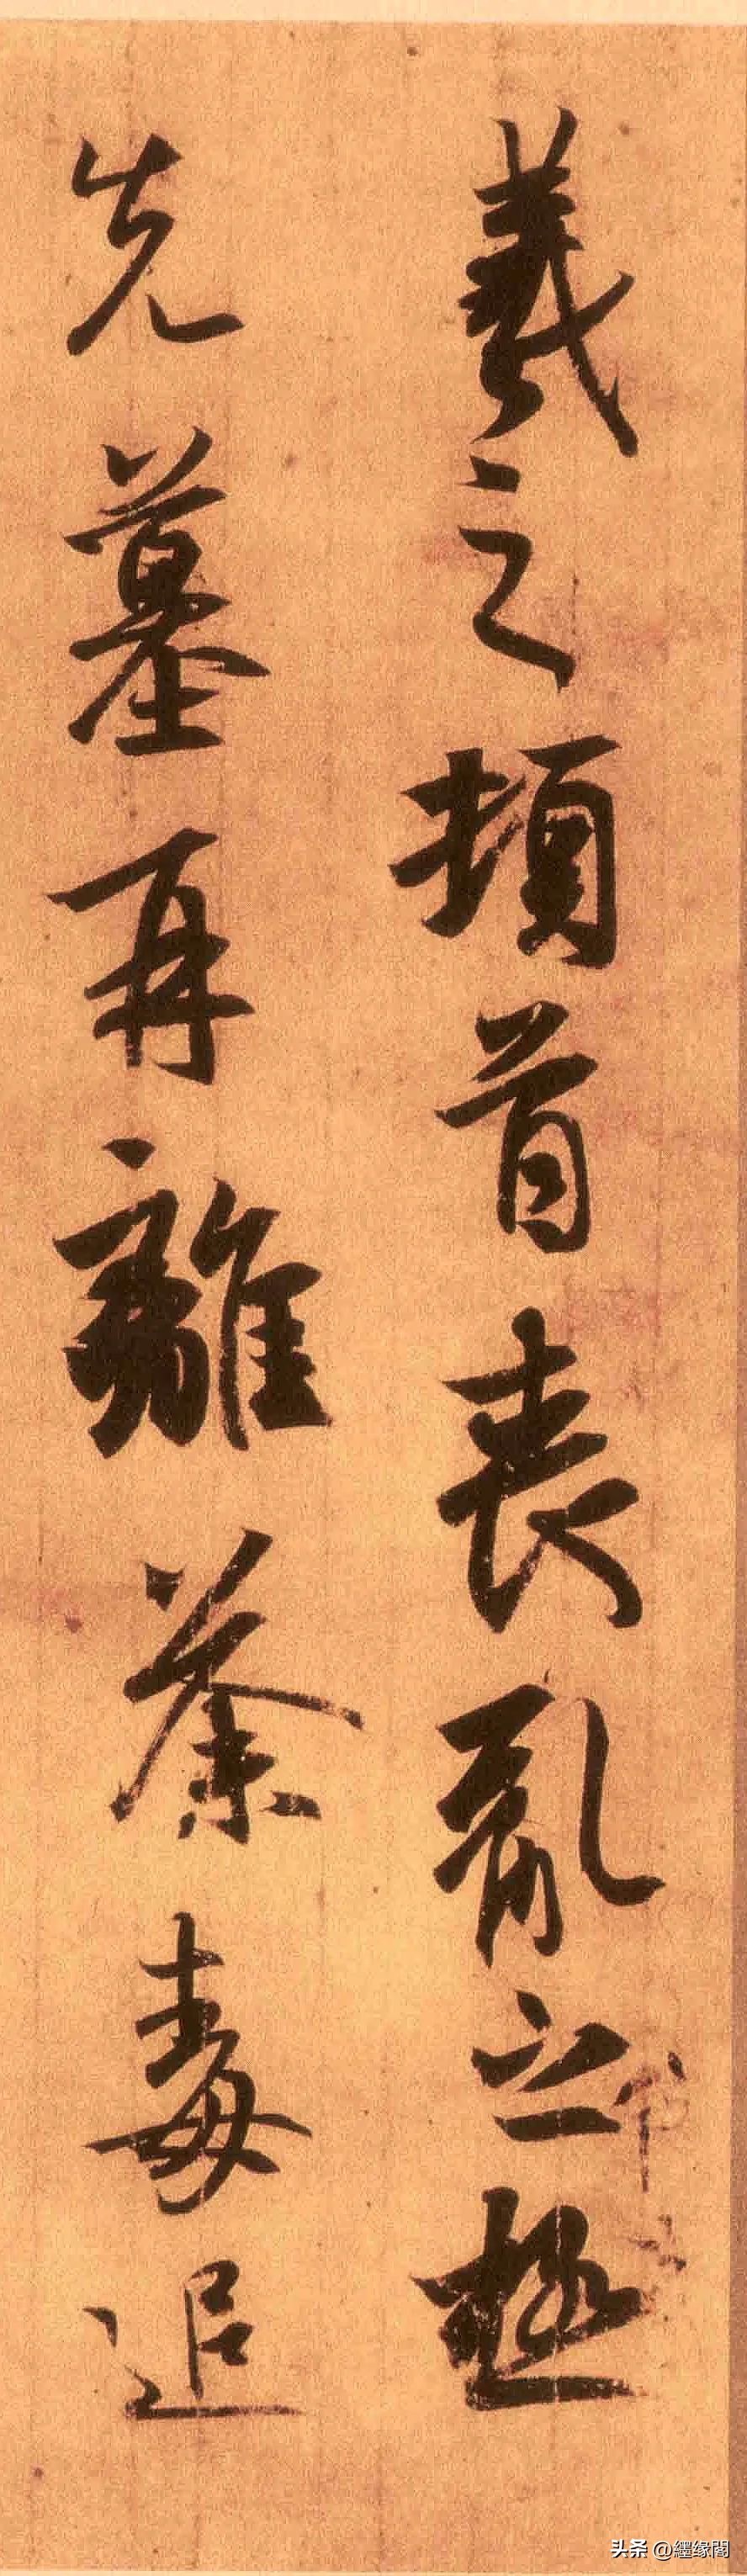 羲之頓首喪亂之極
先墓再離荼毒追
头条 @纒缘閣